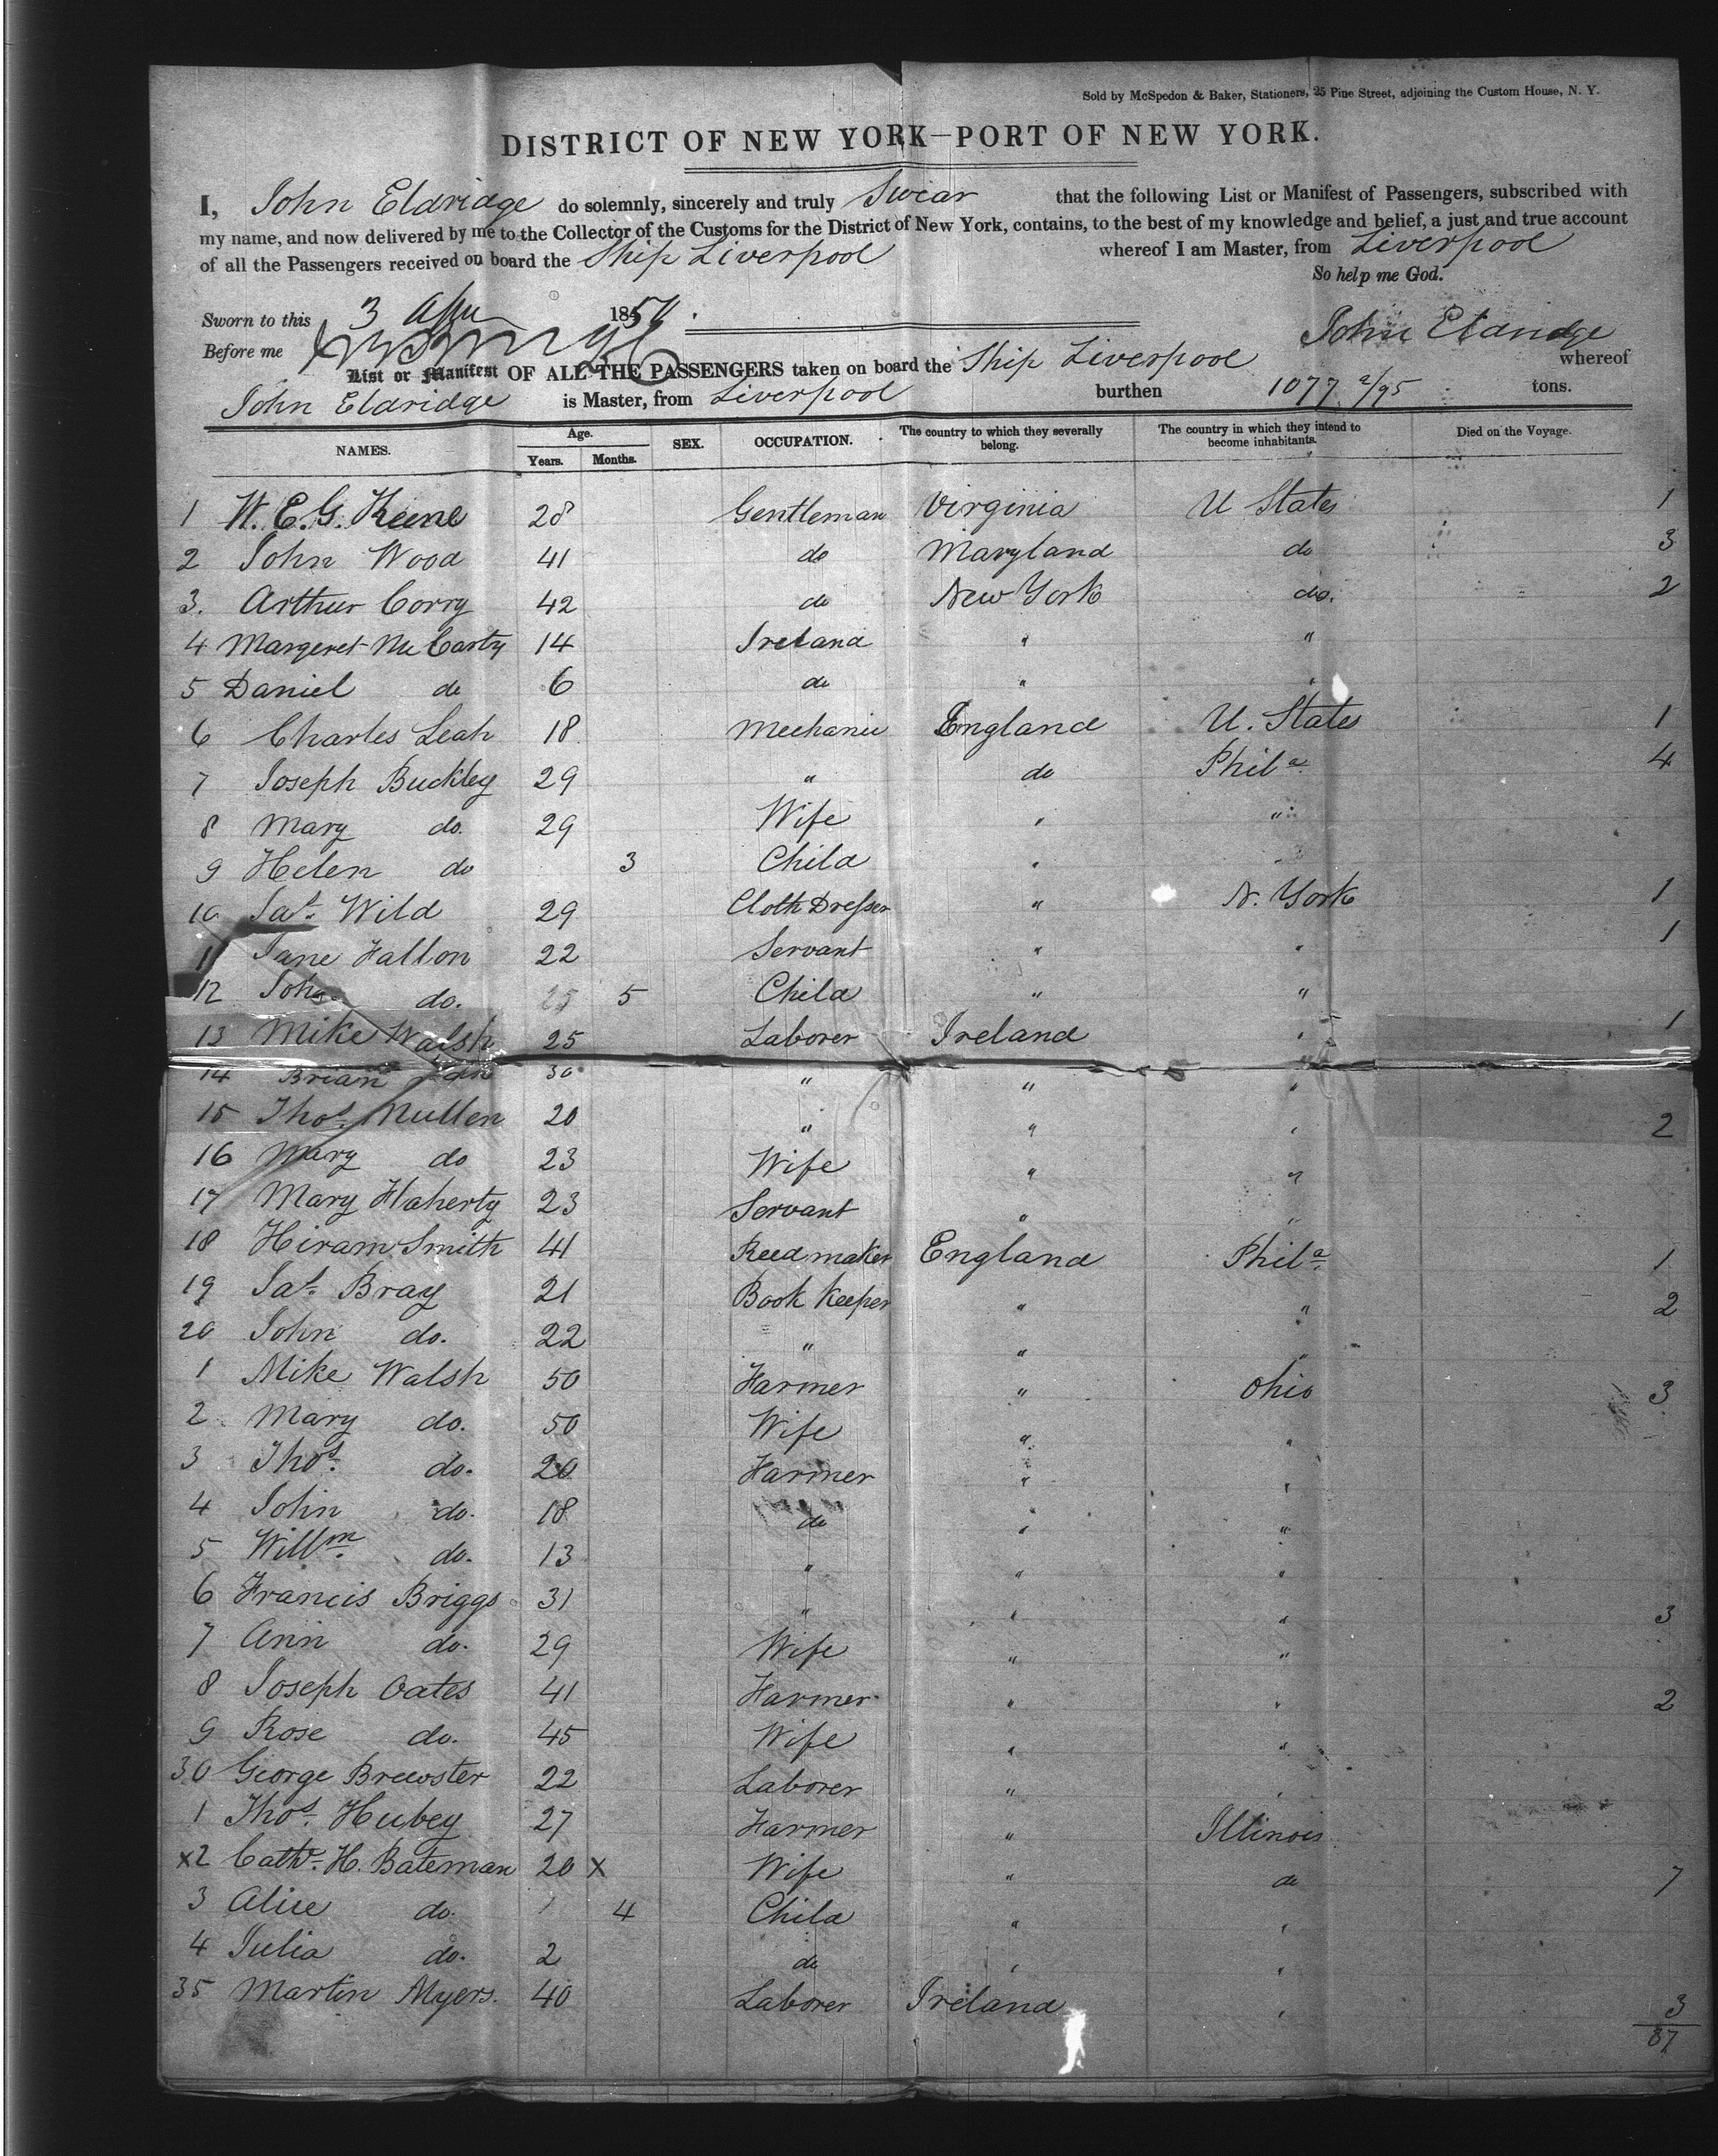 Sold by McSpedon & Baker, Stationers, 25 Pine Street, adjoining the Custom House, N. Y.
DISTRICT OF NEW YORK—PORT OF NEW YORK.
I, John Eldridge do solemnly, sincerely and truly Swear that the following List or Manifest of Passengers, subscribed with
my name, and now delivered by me to the Collector of the Customs for the District of New York, contains, to the best of my knowledge and belief, a just and true account
of all the Passengers received on board the Ship Liverpool whereof I am Master, from Liverpool
So help me God.
Sworn to this 3 1850.
Before me
John Eldridge
List or Manifest OF ALL THE PASSENGERS taken on board the Ship Liverpool whereof
John Eldridge is Master, from Liverpool burthen 1077 2/95 tons.
NAMES. Age. Years. Months. SEX. OCCUPATION. The country to which they severally belong. The country in which they intend to become inhabitants. Died on the Voyage.
1 W. E. G. Keene 28 Gentleman Virginia U States 1
2 John Wood 41 do Maryland do 3
3. Arthur Corry 42 do New York do. 2
4 Margeret McCarty 14 Ireland " "
5 Daniel do 6 do " "
6 Charles Leah 18 Mechanic England U. States 1
7 Joseph Buckley 29 " do Phila. 4
8 Mary do. 29 Wife " "
9 Helen do 3 Child " "
10 Jas. Wild 29 Cloth Dresser " N. York 1
11 Jane Fallon 22 Servant " " 1
12 John do. 5 Child " "
13 Mike Walsh 25 Laborer Ireland " 1
14 Brian 30 " " "
15 Thos. Mullen 20 " " " 2
16 Mary do 23 Wife " "
17 Mary Flaherty 23 Servant " "
18 Hiram Smith 41 Reed maker England Phila. 1
19 Jas. Bray 21 Book Keeper " " 2
20 John do. 22 " " "
1 Mike Walsh 50 Farmer " Ohio 3
2 Mary do. 50 Wife " "
3 Thos. do. 20 Farmer " "
4 John do. 18 do " "
5 Willm. do. 13 " " "
6 Francis Briggs 31 " " " 3
7 Ann do. 29 Wife " "
8 Joseph Oates 41 Farmer " " 2
9 Rose do. 45 Wife " "
30 George Brewster 22 Laborer " "
1 Thos. Hubey 27 Farmer " Illinois
x2 Cath. H. Bateman 20 x Wife " do 7
3 Alice do. 1 4 Child " "
4 Julia do. 2 do " "
35 Martin Myers. 40 Laborer Ireland " 3
37